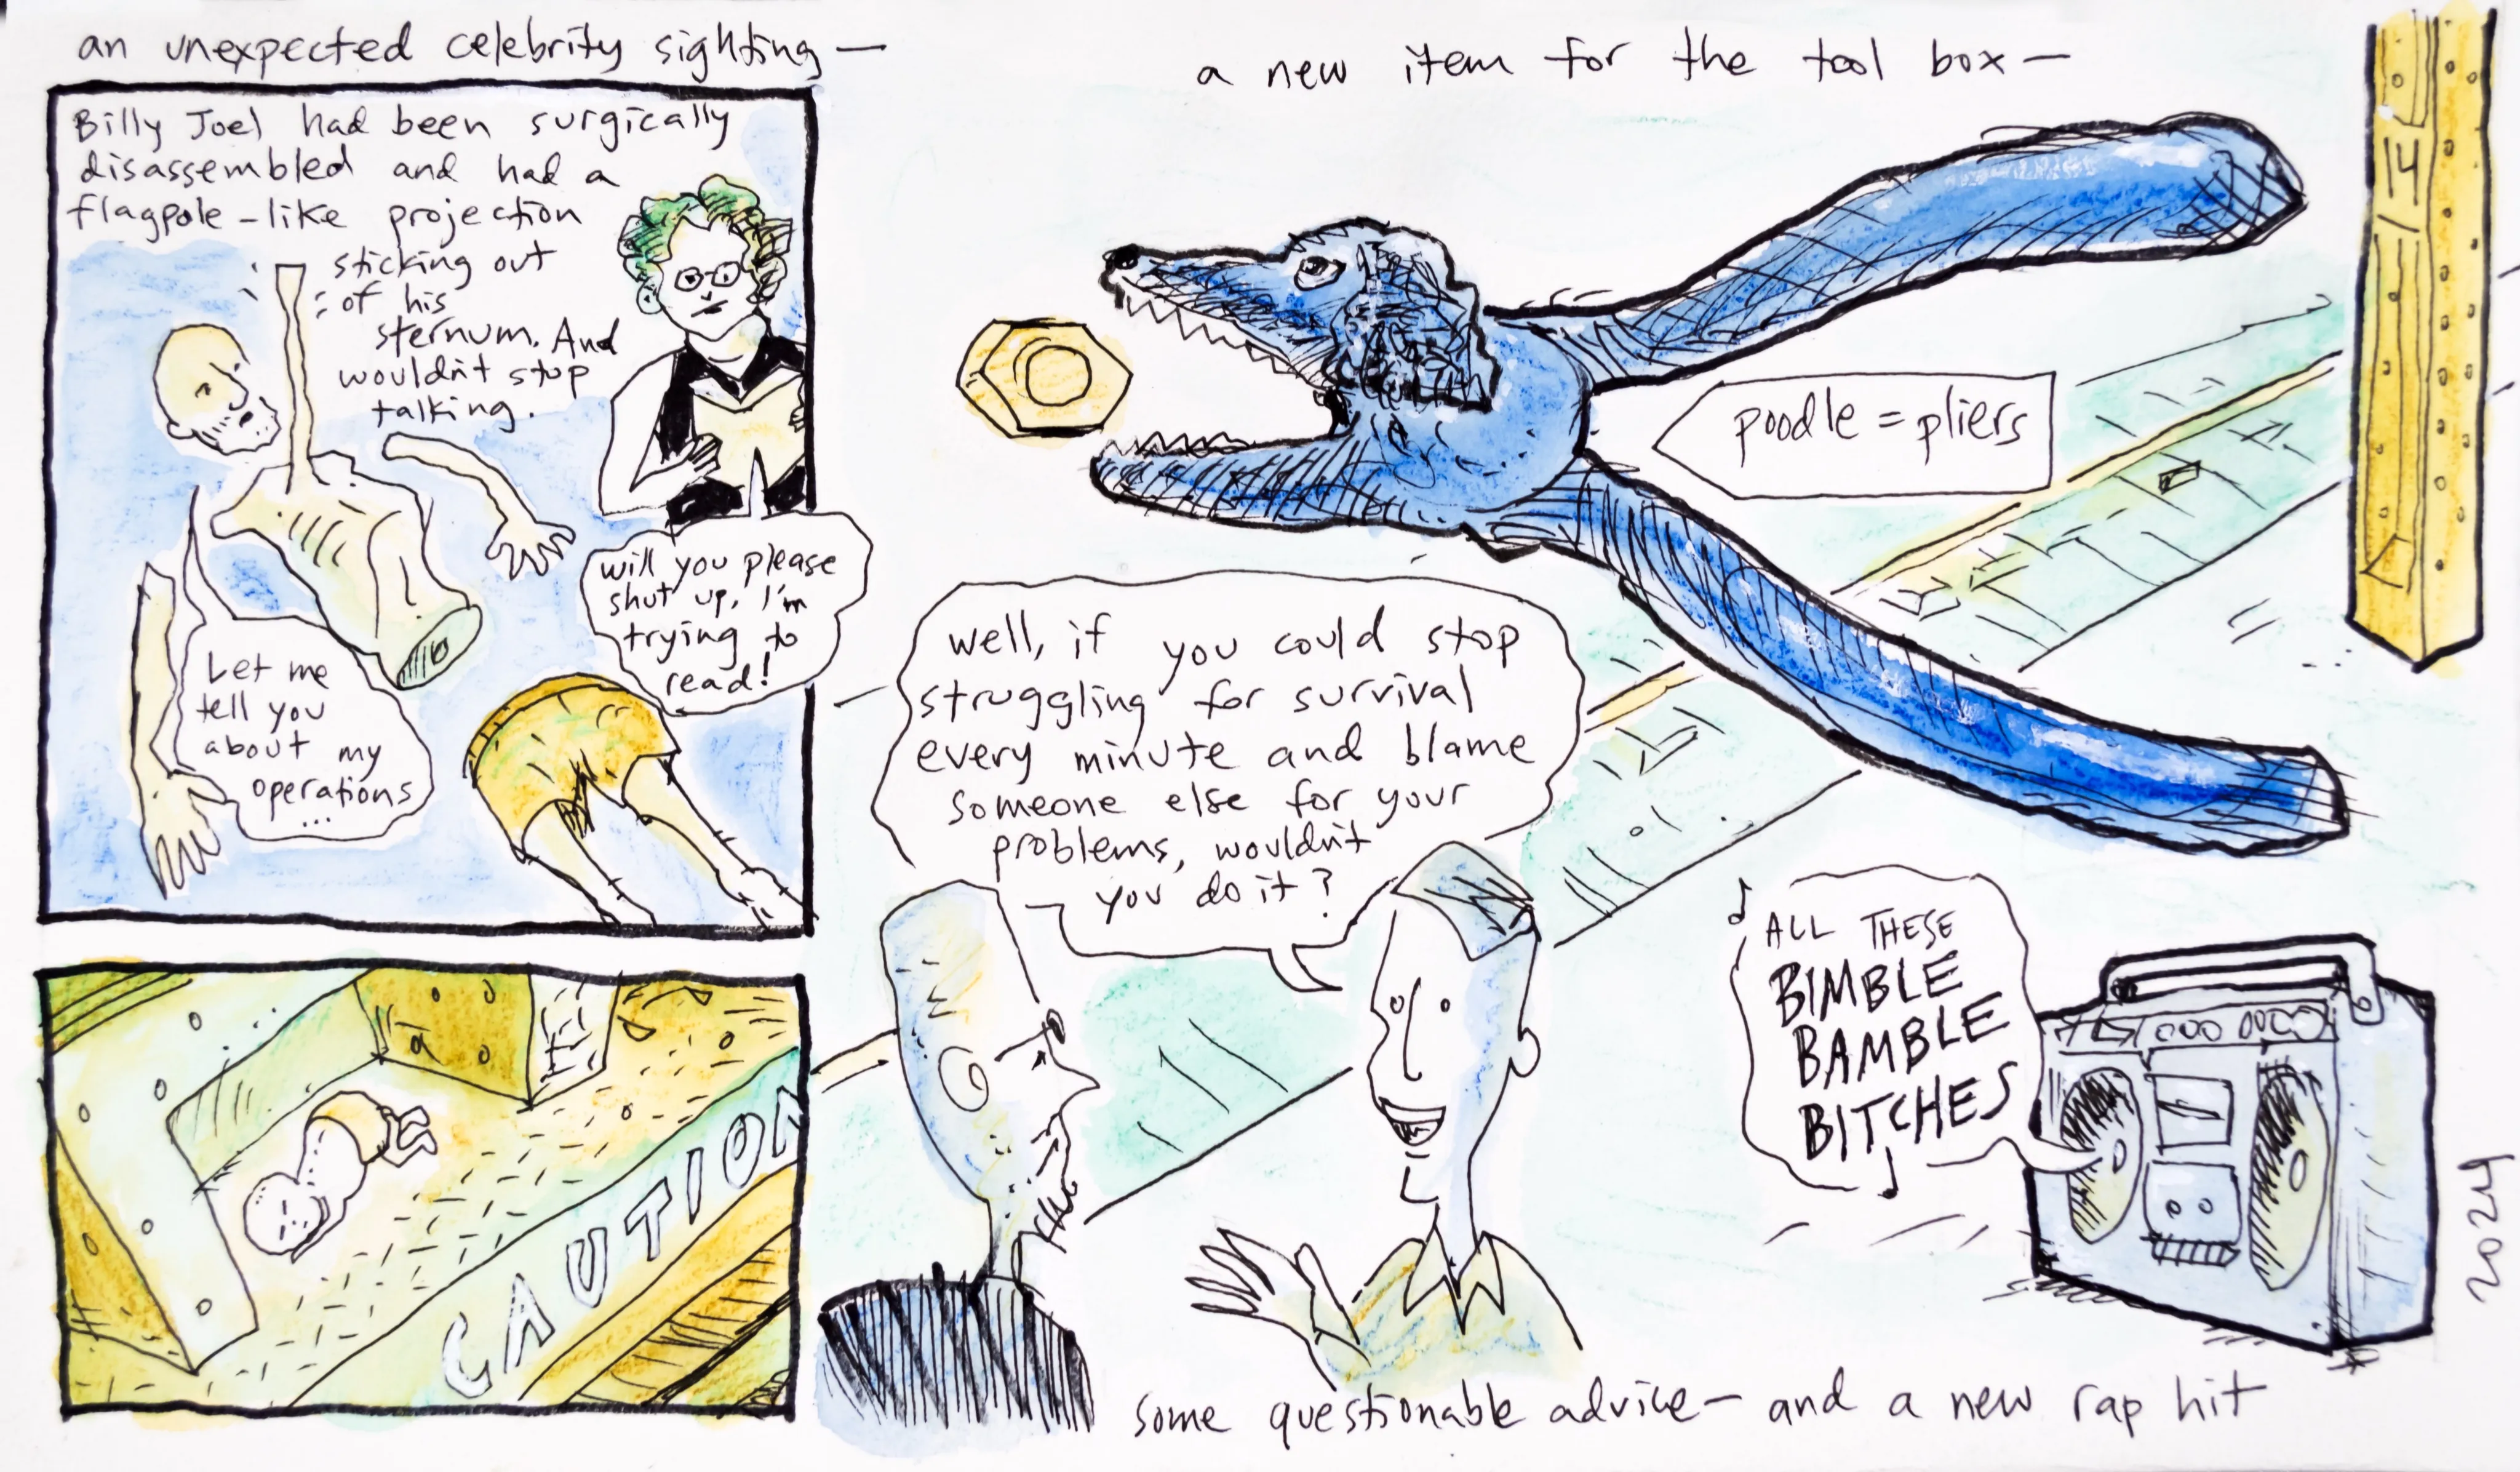 an unexpected celebrity sighting —
Billy Joel had been surgically
disassembled and had a
flagpole-like projection
sticking out
of his
sternum. And
wouldn't stop
talking.
will you please
shut up, I'm
trying to
read!
Let me
tell you
about my
operations
...
CAUTION
a new item for the tool box —
14
poodle = pliers
well, if you could stop
struggling for survival
every minute and blame
someone else for your
problems, wouldn't
you do it?
ALL THESE
BIMBLE
BAMBLE
BITCHES
some questionable advice — and a new rap hit
2024